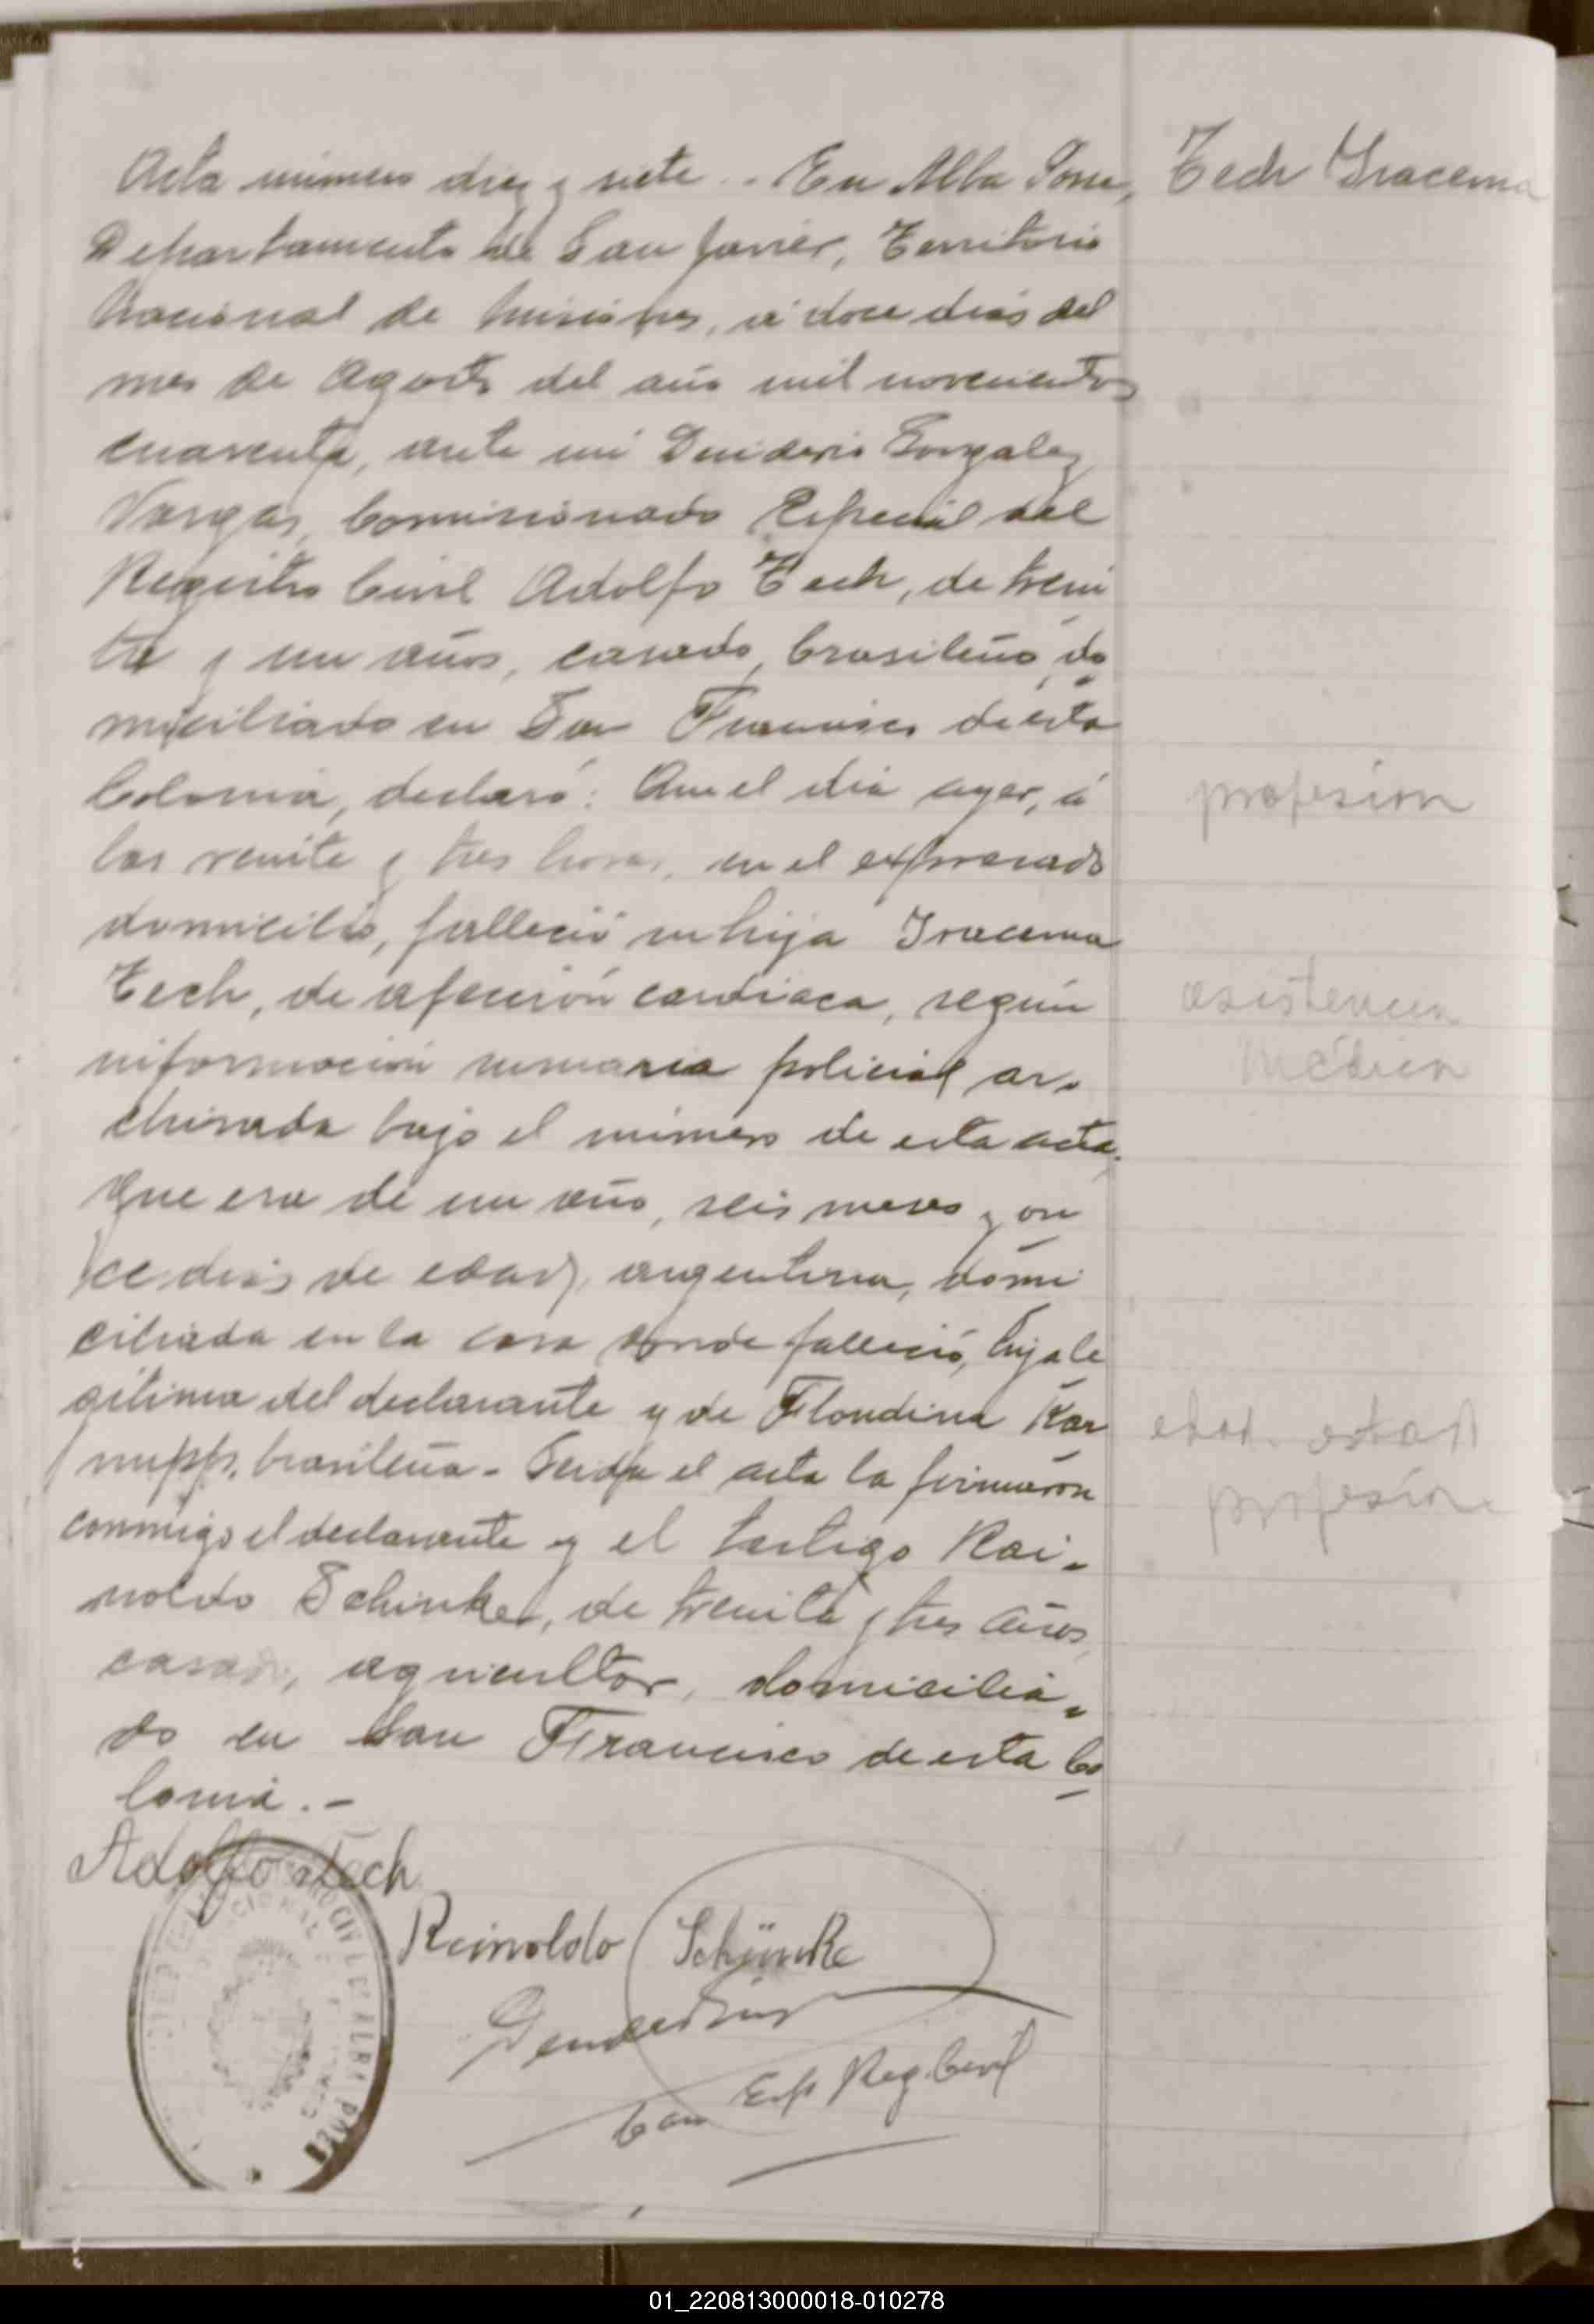 Acta número diez y siete.- En Alba Posse,
Tech Iracema
Departamento de San Javier, Territorio
Nacional de Misiones, á doce días del
mes de Agosto del año mil novecientos
cuarenta, ante mí Desiderio Gonzalez
Vargas, Comisionado Especial del
Registro Civil Adolfo Tech, de trein
ta y un años, casado, brasileño, do
miciliado en San Francisco de esta
Colonia, declaró: Que el día ayer, á
profesión
las veinte y tres horas, en el expresado
domicilio, falleció su hija Iracema
Tech, de afección cardiaca, según
asistencia
información sumaria policial ar-
Médica
chivada bajo el número de esta acta.
Que era de un año, seis meses y on
ce días de edad, argentina, domi
ciliada en la casa donde falleció, hija le
gítima del declarante y de Flondina Kar
edad. estado
nupp, brasileña.- Leída el acta la firmaron
profesión
conmigo el declarante y el testigo Rai-
noldo Schinke, de treinta y tres años,
casado, agricultor, domicilia-
do en San Francisco de esta Co
lonia.-
Adolfo Tech
Reinoldo Schünke
Com Esp Reg. Civil
01_220813000018-010278